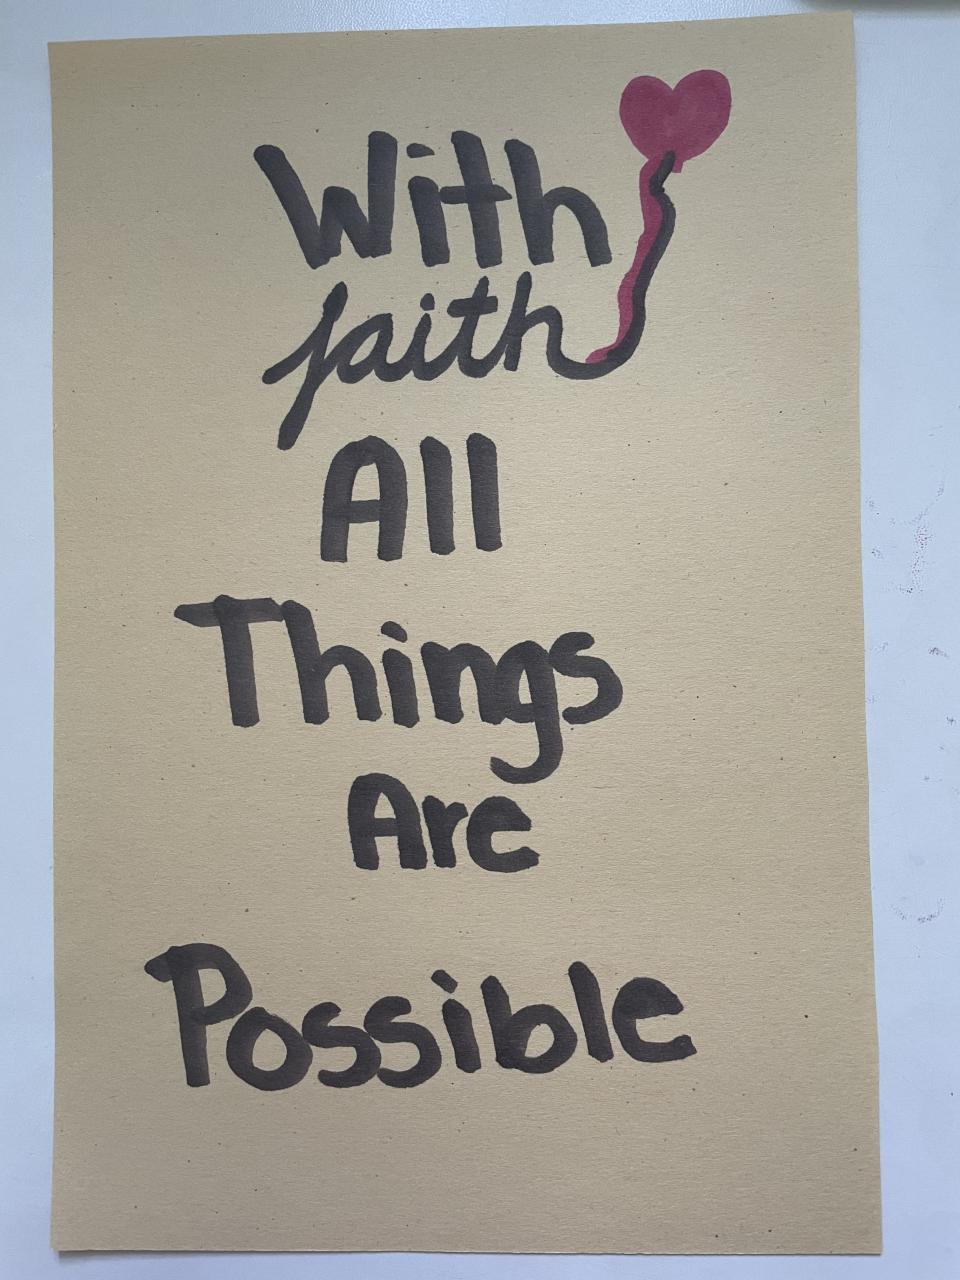 With
faith
All
Things
Are
Possible